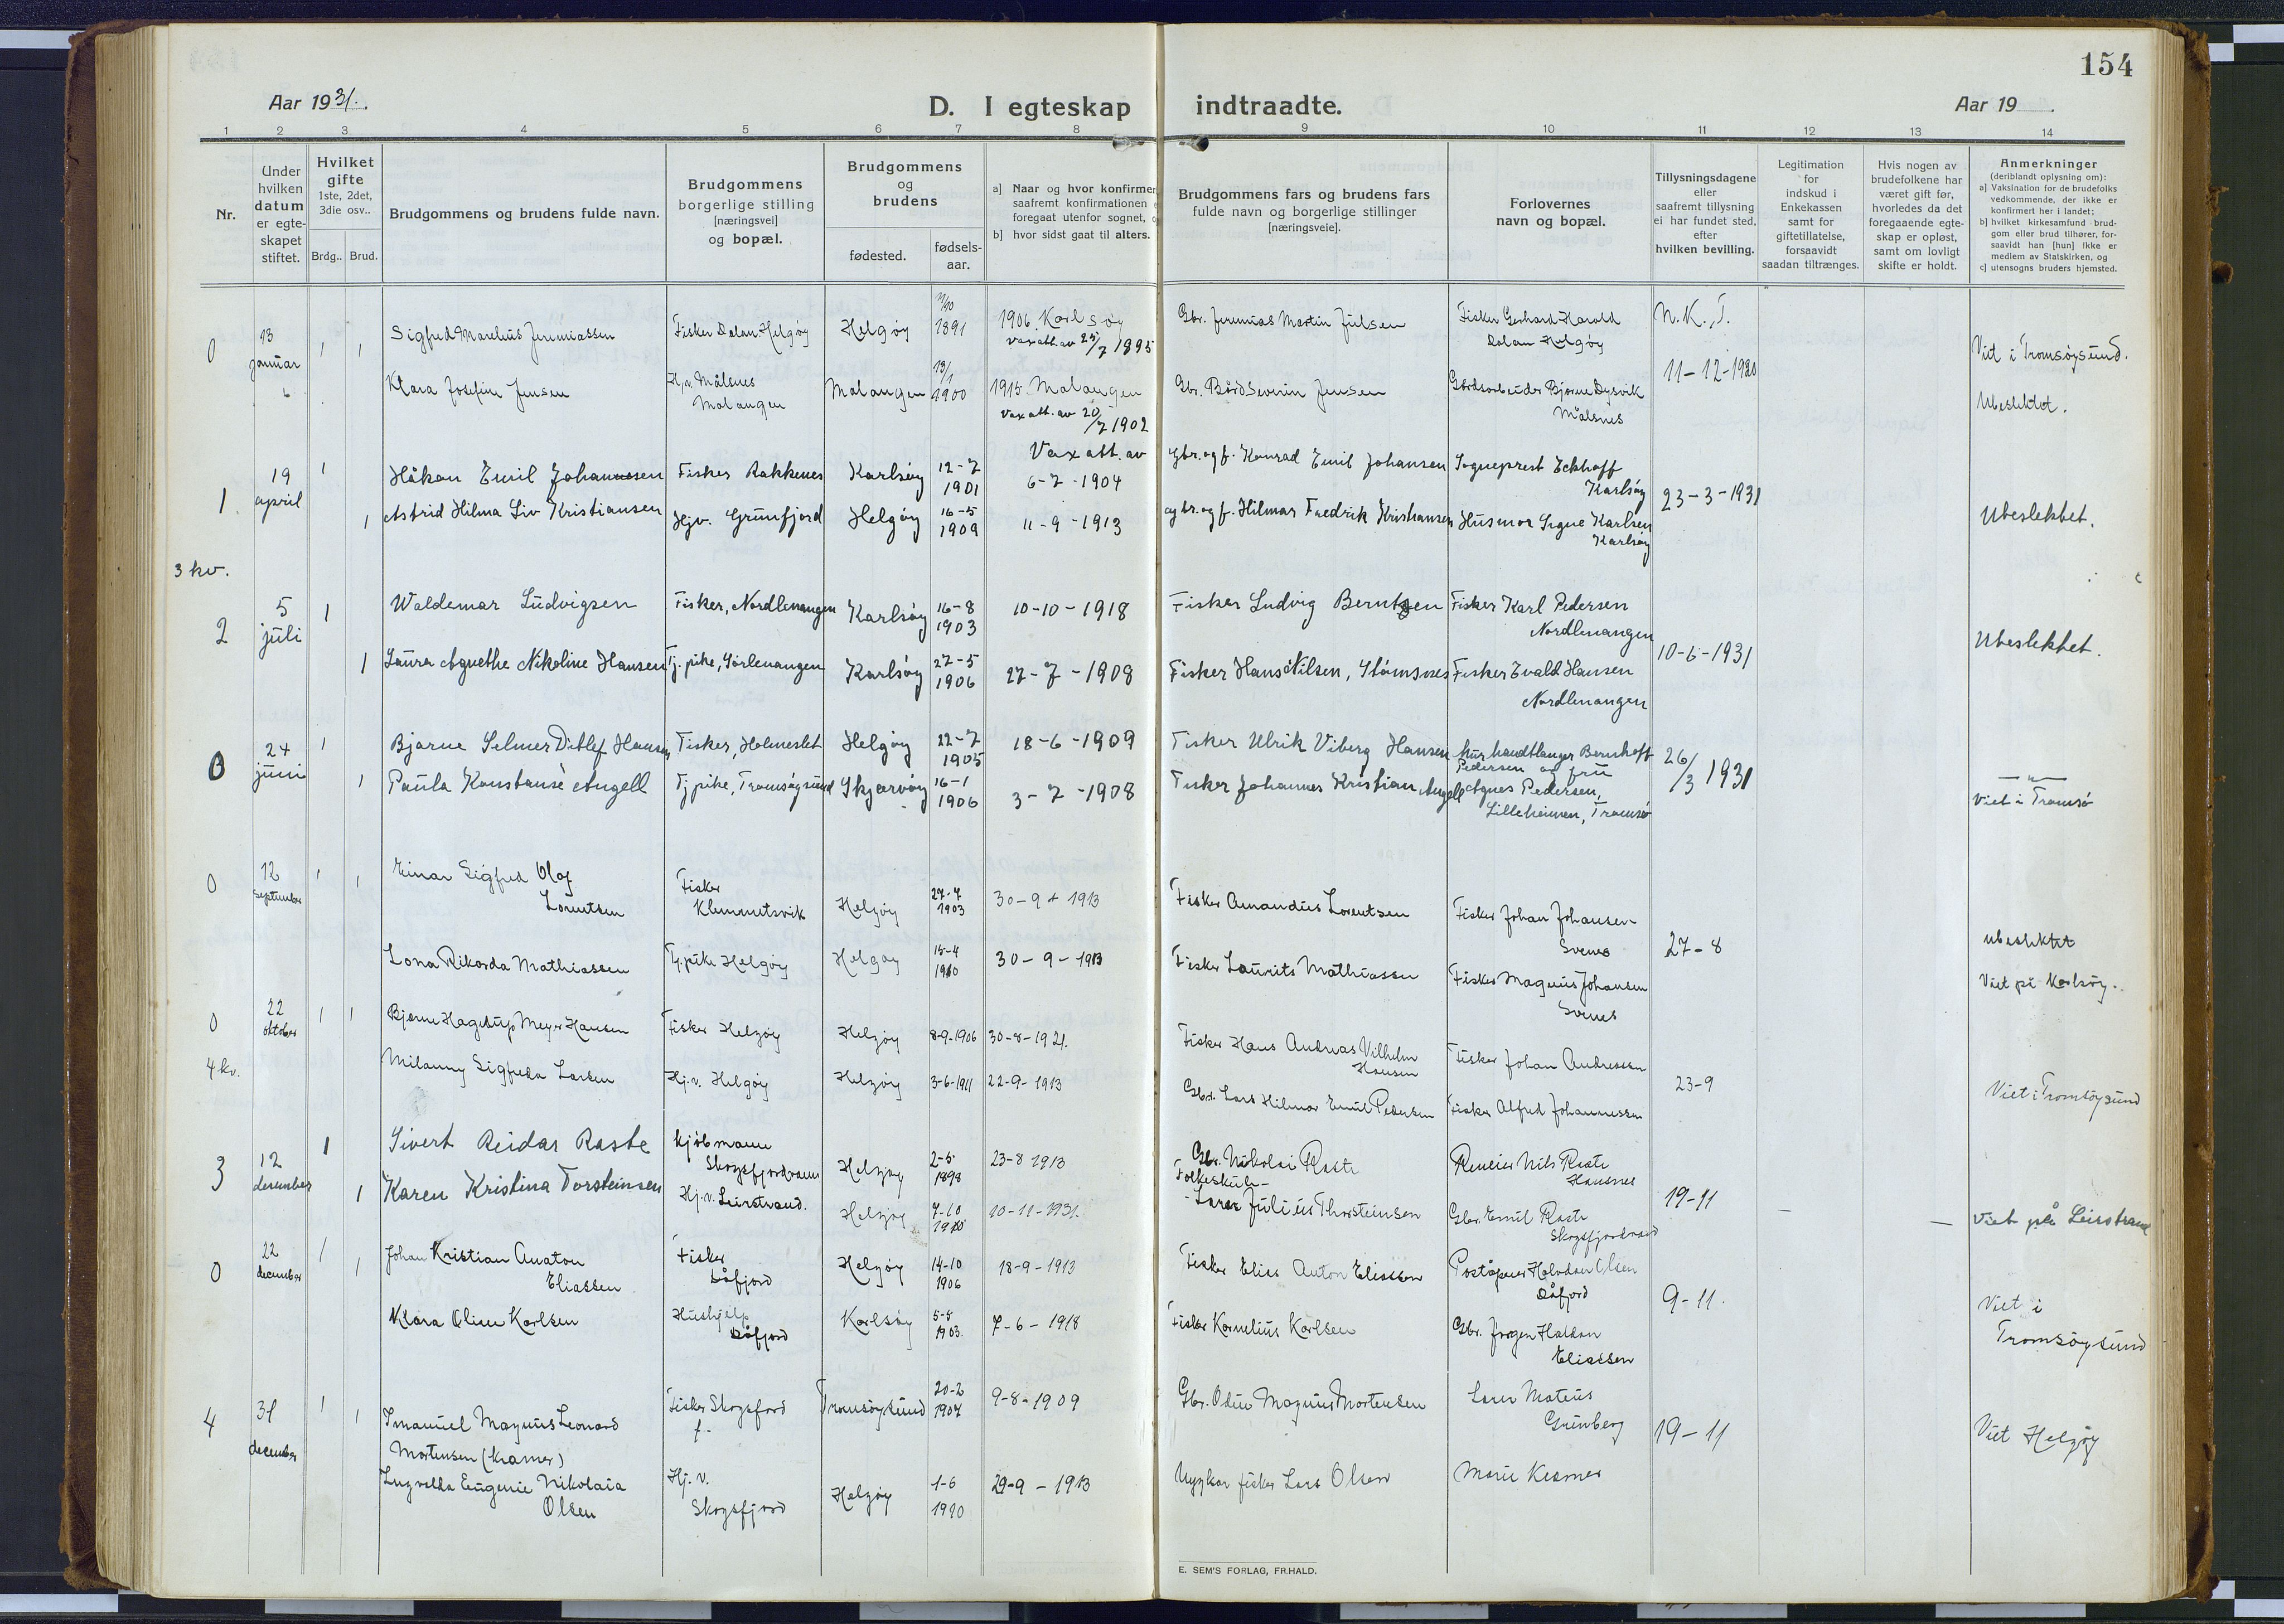 154
Aar 1931.
D. I egteskap indtraadte.
Aar 19    .
1 2 3 4 5 6 7 8 9 10 11 12 13 14
Nr.
Under hvilken datum er egteskapet stiftet.
Hvilket gifte 1ste, 2det, 3die osv..
Brdg.. Brud.
Brudgommens og brudens fulde navn.
Brudgommens borgerlige stilling [næringsvei] og bopæl.
Brudgommens og brudens
fødested.
fødselsaar.
a] Naar og hvor konfirmer
saafremt konfirmationen
foregaat utenfor sognet,
b] hvor sidst gaat til alters.
Brudgommens fars og brudens fars
fulde navn og borgerlige stillinger
[næringsveie].
Forlovernes
navn og bopæl.
Tillysningsdagene
eller
saafremt tillysning
ei har fundet sted,
efter
hvilken bevilling.
Legitimation
for
indskud i
Enkekassen
samt for
giftetillatelse,
forsaavidt
saadan tiltrænges.
Hvis nogen av
brudefolkene har
været gift før,
hvorledes da det
foregaaende egte-
skap er opløst,
samt om lovligt
skifte er holdt.
Anmerkninger
(deriblandt oplysning om):
a] Vaksination for de brudefolks
vedkommende, der ikke er
konfirmert her i landet;
b] hvilket kirkesamfund brud-
gom eller brud tilhører, for-
saavidt han [hun] ikke er
medlem av Statskirken, og
c] utensogns bruders hjemsted.
0 13 januar 1 1 Sigfred Marelius Jeremiassen Fisker Dolan Helgøy Helgøy 1891 1906 Karlsøy
vaxatt. av 25/7 1895
Gbr. Jeremias Martin Julsen Fisker Gerhard Harald
Dolan Helgøy
N.K.T.
11-12-1930
Viet i Tromsøysund.
Klara Josefine Jensen Hj.v. Målsnes
Malangen
Malangen 13/1 1900 1915 Malangen
Vaxatt. av 20/7 1902
Gbr. Bård Severin Jensen Gårdsarbeider Bjarne Dysvik
Målsnes
Ubeslektet.
1 19 april 1 Håkon Emil Johannessen Fisker Rakkenes Karlsøy 12-7 1901 Vaxatt. av
6-7-1904
Gbr. og f. Konrad Emil Johansen Sogneprest Eckhoff
Karlsøy
23-3-1931
1 Astrid Hilma Liv Kristiansen Hjv. Grunfjord Helgøy 16-5 1909 11-9-1913
gbr. og f. Hilmar Fredrik Kristiansen Husmor Signe Karlsen
Karlsøy
Ubeslektet.
3 kv.
2 5 juli 1 Waldemar Ludvigsen Fisker, Nordlenangen Karlsøy 16-8 1903 10-10-1918
Fisker Ludvig Berntsen Fisker Karl Pedersen
Nordlenangen
10-6-1931
Ubeslektet.
1 Laura Agnethe Nikoline Hansen Tj. pike, Sørlenangen Karlsøy 27-5 1906 27-7-1908
Fisker Hans Nilsen, Fisker Evald Hansen
Nordlenangen
0 24 juni 1 Bjarne Selmer Ditlef Hansen Fisker, Holmeslet Helgøy 22-7 1905 18-6-1909
Fisker Ulrik Viberg Hansen Bernhoft
Pedersen og fru
26/3 1931
1 Paula Konstansé Angell Tj pike, Tromsøysund Skjærvøy 16-1 1906 3-7-1908
Fisker Johannes Kristian Angell Agnes Pedersen,
Lilleheimen, Tromsø
—"—
Viet i Tromsø
0 12 september 1 1 Einar Sigfred Olaf
Lorentsen
Fisker
Klemmetsvik
Helgøy 27-7 1903 30-9-1913
Fisker Amandus Lorentsen Fisker Johan Johansen
Svenes
27-8
ubeslektet
Lona Rikarda Mathiassen Tj. pike Helgøy Helgøy 15-4 1910 30-9-1913
Fisker Laurits Mathiassen Fisker Magnus Johansen
Svenes
Viet på Karlsøy.
0 22 oktober 1 1 Bjarne Hagerup Meyer Hansen Fisker Helgøy Helgøy 8-9-1906 30-8-1921.
Fisker Hans Andreas Vilhelm
Hansen
Fisker Johan Andressen
23-9
4 kv.
Milanny Sigfreda Larsen Hj.v. Helgøy Helgøy 3-6-1911 22-9-1913
Gbr. Lars Hilmar Emil Pedersen Fisker Alfred Johannessen
Viet i Tromsøysund
3 12 desember 1 Sivert Reidar Raste Kjøbmann
Skogsfjordvann
Helgøy 2-5 1898 23-8 1913
Gbr. Nikolai Raste Nils Raste
Hansnes
1 Karen Kristina Torsteinsen Hj.v. Leirstrand. Helgøy 7-10 1910 10-11-1931.
Folkeskole-
Lærer Julius Thorsteinsen Gbr. Emil Raste
Skogsfjordvand
19-11 — — Viet på Leirstrand
0 22 december 1 1 Johan Kristian Anaton
Eliassen
Fisker
Dåfjord
Helgøy 14-10 1906 18-9-1913
Fisker Elias Anton Eliassen Poståpner Halvdan Olsen
Dåfjord
9-11.
Klara Oline Karlsen Hushjelp
Dåfjord
Karlsøy 5-5 1903. 7-6-1918
Fisker Kornelius Karlsen Gbr. Jørgen Haldan
Eliassen
Viet i
Tromsøysund
4 31 december 1 1 Imanuel Magnus Leonard
Mortensen (Kramer)
Fisker Skogsfjord
f.
Tromsøysund 20-2 1907 9-8-1909
Gbr. Odin Magnus Mortensen Lærer Mateus
Grünberg
19-11
Viet Helgøy
Ingvalda Eugenie Nikolaia
Olsen
Hj.v.
Skogsfjord
Helgøy 1-6 1910 29-9-1913
Ungkar fisker Lars Olsen Marie Kramer
E. SEM'S FORLAG, FR.HALD.